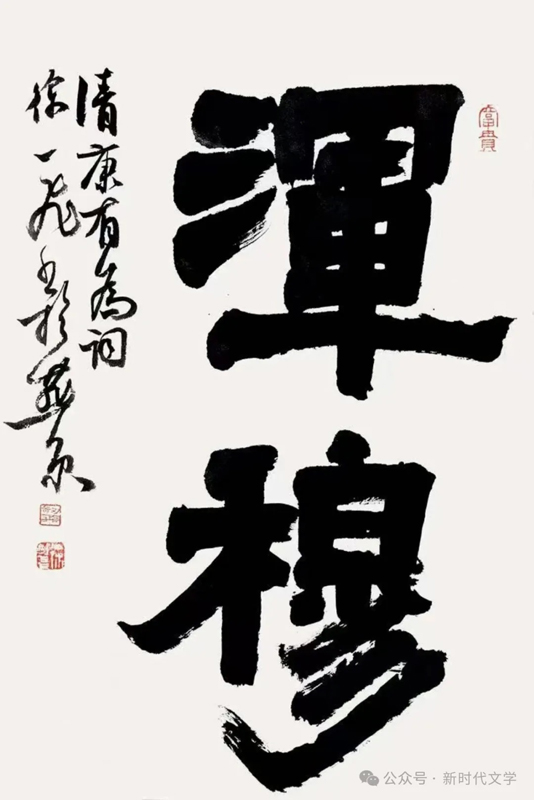 渾穆
清康有為詞
徐一飛書於燕京
公众号 · 新时代文学